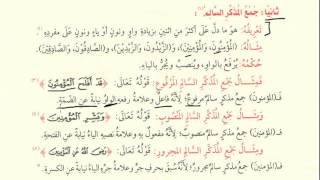 ثَانِيًا: جَمْعُ الْمُذَكَّرِ السَّالِمِ:
تَعْرِيفُهُ: هُوَ مَا دَلَّ عَلَى أَكْثَرَ مِنَ اثْنَيْنِ بِزِيَادَةِ وَاوٍ وَنُونٍ أَوْ يَاءٍ وَنُونٍ عَلَى مُفْرَدِهِ
مِثَالُهُ: (الْمُؤْمِنُونَ، وَالْمُؤْمِنِينَ)، (الزَّيْدُونَ، وَالزَّيْدِينَ)، (الصَّادِقُونَ، وَالصَّادِقِينَ).
حُكْمُهُ: يُرْفَعُ بِالْوَاوِ، وَيُنْصَبُ وَيُجَرُّ بِالْيَاءِ.
وَمِثَالُ جَمْعِ الْمُذَكَّرِ السَّالِمِ الْمَرْفُوعِ: قَوْلُهُ تَعَالَى: ﴿قَدْ أَفْلَحَ الْمُؤْمِنُونَ﴾
فَـ(الْمُؤْمِنُونَ) جَمْعُ مُذَكَّرٍ سَالِمٌ مَرْفُوعٌ؛ لِأَنَّهُ فَاعِلٌ وَعَلَامَةُ رَفْعِهِ الْوَاوُ نِيَابَةً عَنِ الضَّمَّةِ.
وَمِثَالُ جَمْعِ الْمُذَكَّرِ السَّالِمِ الْمَنْصُوبِ: قَوْلُهُ تَعَالَى: ﴿وَبَشِّرِ الْمُؤْمِنِينَ﴾
فَـ(الْمُؤْمِنِينَ) جَمْعُ مُذَكَّرٍ سَالِمٌ مَنْصُوبٌ؛ لِأَنَّهُ مَفْعُولٌ بِهِ وَعَلَامَةُ نَصْبِهِ الْيَاءُ نِيَابَةً عَنِ الْفَتْحَةِ.
وَمِثَالُ جَمْعِ الْمُذَكَّرِ السَّالِمِ الْمَجْرُورِ: قَوْلُهُ تَعَالَى: ﴿رَضِيَ اللَّهُ عَنِ الْمُؤْمِنِينَ﴾
فَـ(الْمُؤْمِنِينَ) جَمْعُ مُذَكَّرٍ سَالِمٌ مَجْرُورٌ؛ لِأَنَّهُ سُبِقَ بِحَرْفِ جَرٍّ وَعَلَامَةُ جَرِّهِ الْيَاءُ نِيَابَةً عَنِ الْكَسْرَةِ.